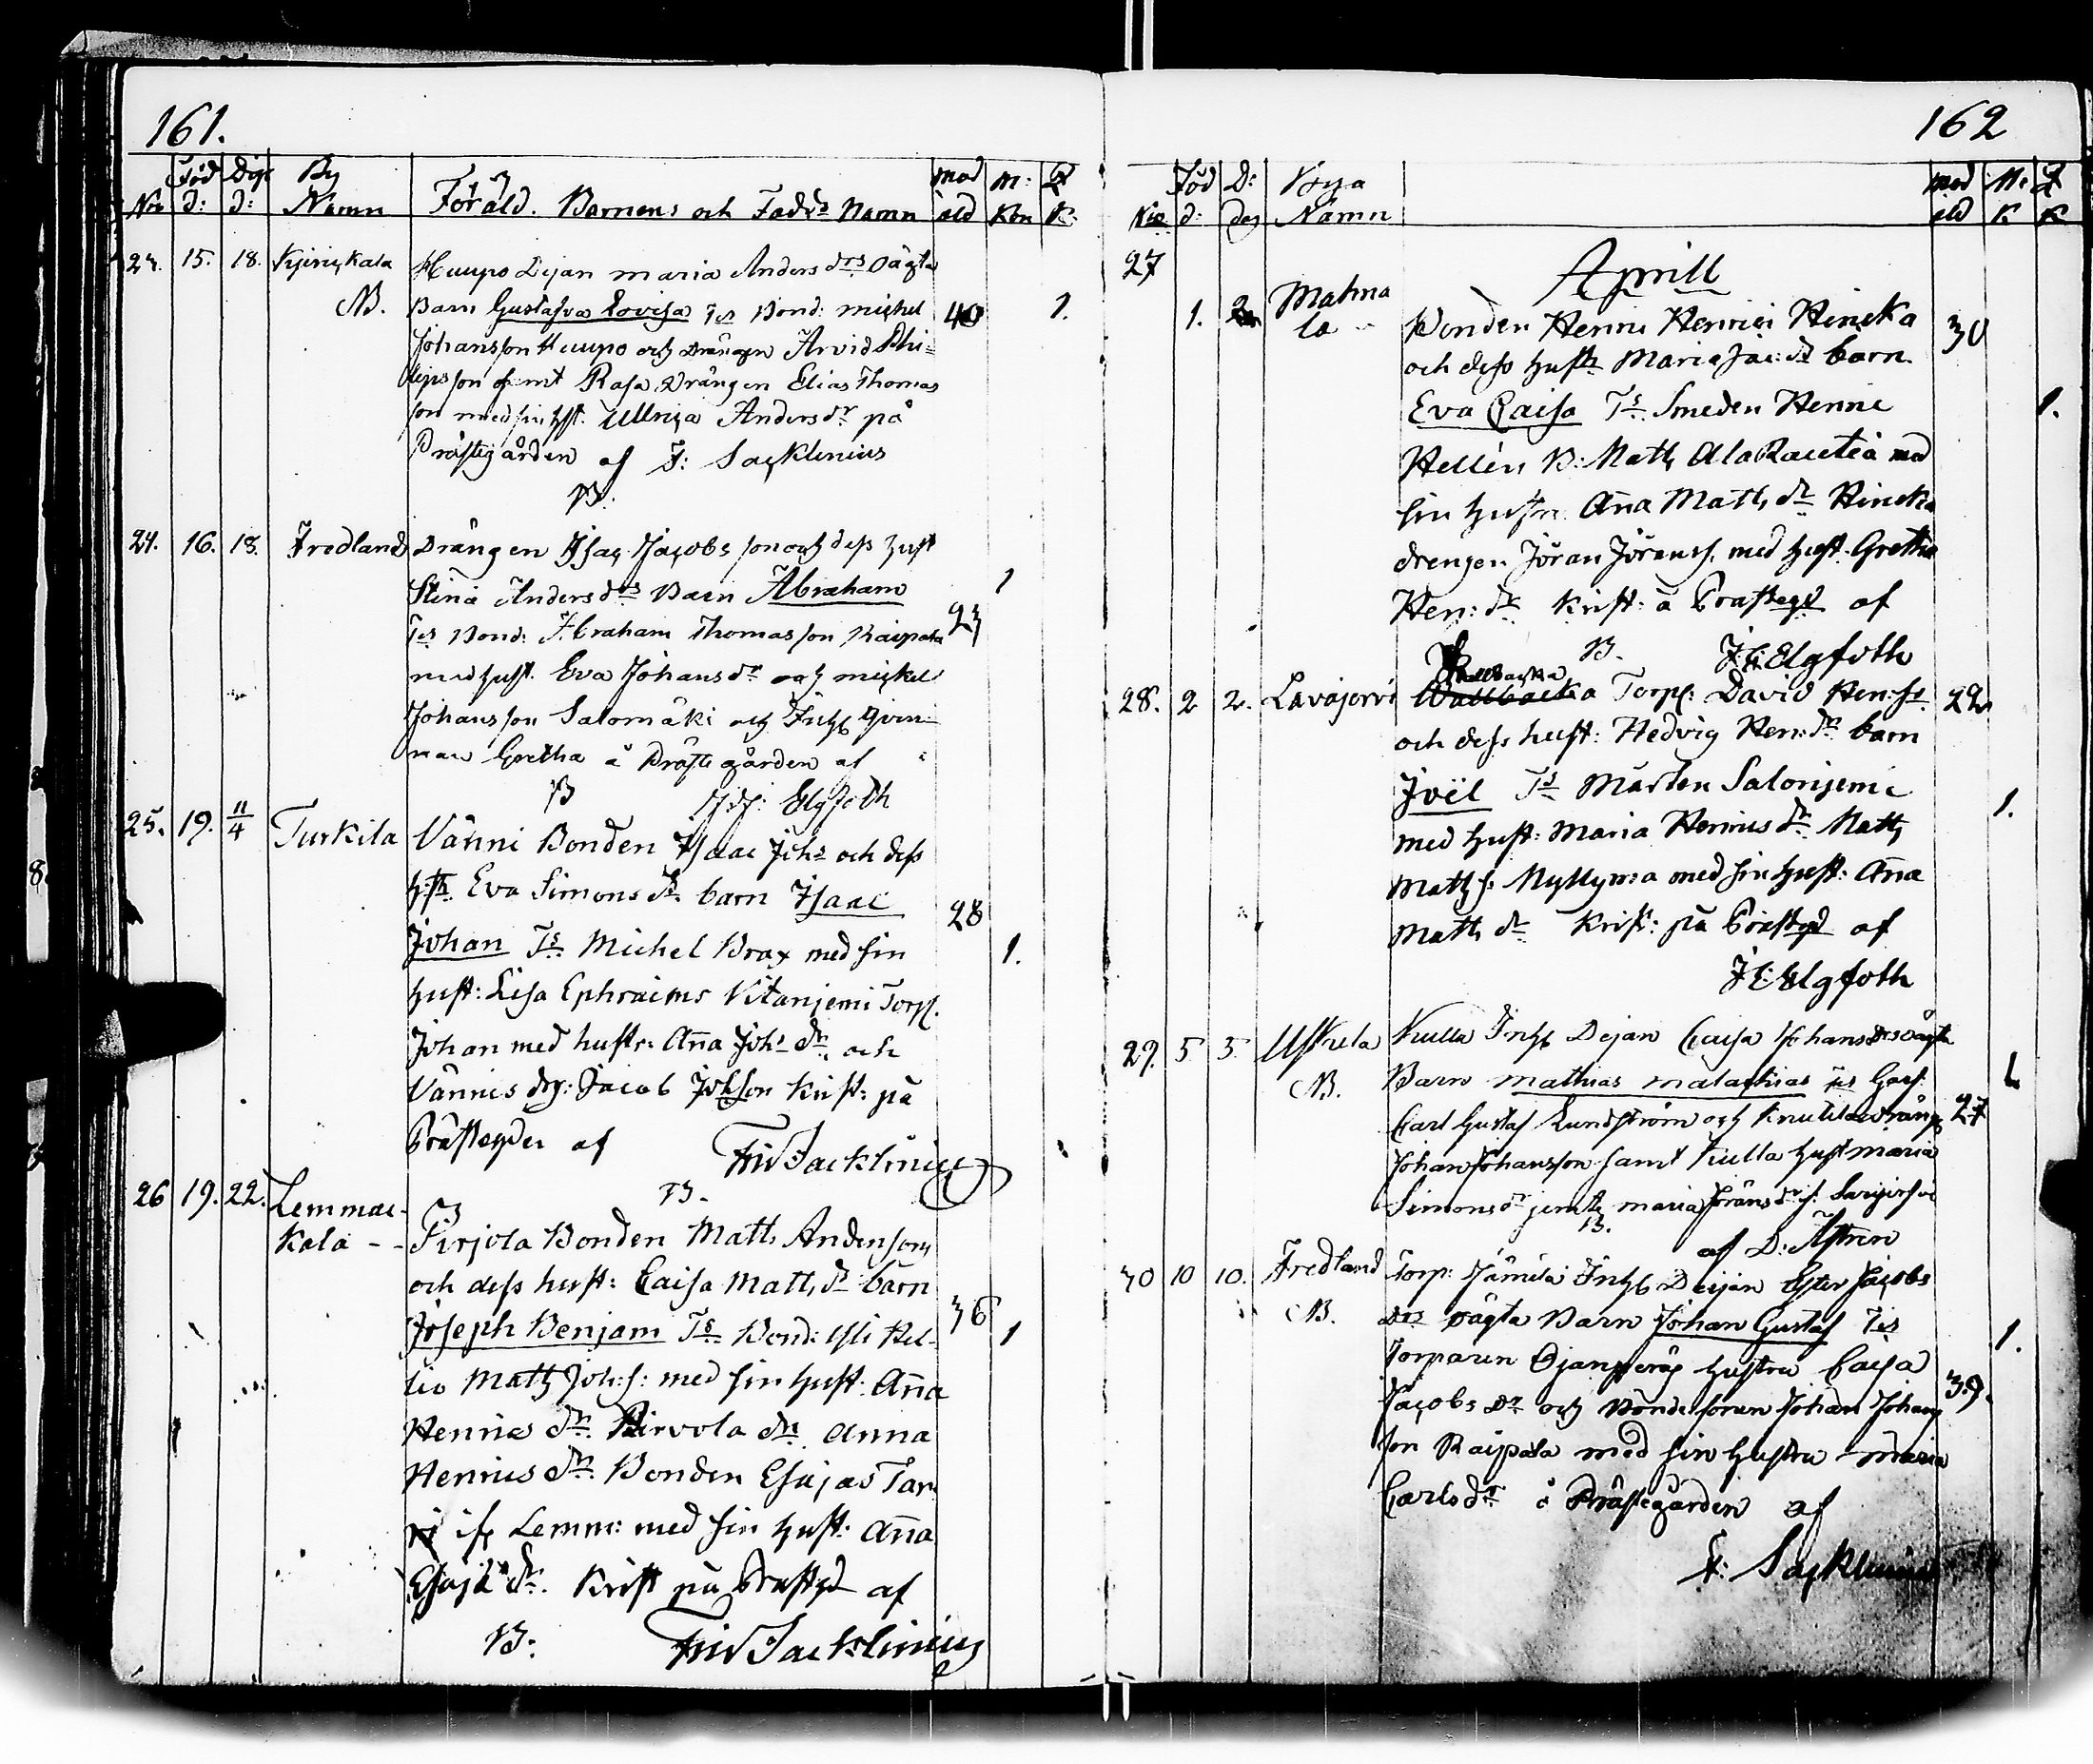 161.
Nro Föd d: Döp d: By Namn Föräld. Barnens och Fadds Namn mod åld M: Kön Q K:
24. 15. 18. Kjinkala Huupo Pijan maria Anders drs oägta
NB. Barn Gustafva Lovisa Ts Bond: michel 40 1.
Johansson Huupo och Drängen Arvid Phi=
lipsson samt Rasa Drängen Elias Thomas
son med sin hst. Ullrica Andersdr på
Prästegården af F: Sacklenius
B.
24. 16. 18. Fredland Drängen Isac Jacobsson och dess hust
Stina Andersdrs Barn Abraham 1
Ts Bond: Abraham Thomasson Raipala 23
med hust. Eva Johansdr och mickel
Johansson Salomäki och Inhs
man Gretha å Prästegården af
B Elgfoth
25. 19. 11/4 Turkila Vänni Bonden Isaac Johs och dess
hst. Eva Simonsdr barn Isaac 28
Johan Ts Michel Brax med sin 1.
hust: Lisa Ephraims Vitaniemi Torp.
Johan med hustr: Ana Johs dr. och
Vännis drg: Jacob Johsson Krist: på
Prästegden af Frid Sacklinius
B.
26 19. 22. Lemmac-
kala - - Pirjola Bonden Matts Andersson
och dess hust: Caisa Matts dr barn
Joseph Benjam Ts Bond: Yli Kel- 36 1
lio Matts Joh: s: med sin hust: Ana
Henrics dr. Pirvola dr. Anna
Henrics dr. Bonden Esajas Tar
if. Lemm: med sin hust: Ana
Esaja dr. Krist på Prästgd af
B. Frid Sacklinius
162
Nio Föd d: D: dag Byya Namn mod åld M: K Q K
27 Aprill
1. 2 Matma
la - Bonden Henric Henrici Heincka 30
och dess hustr Maria Jac: dr barn
Eva Caisa Ts. Smeden Henric 1.
Hellén B: Matts Ala Rautia med
sin hustru Ana Matts dr Heincka
drengen Jöran Jörenss. med hust. Gretha
Hen: dr Krist: å Prästegd af
B. J: C: Elgfoth
28. 2 2. Lavajervi Wallbacka Torp: David Hen: sr. 22
och dess hust: Hedvig Hen: dr barn
Joël Ts Mårten Saloniemi 1.
med hust: Maria Henrics dr. Matts
Matts s: Myllymia med sin hust: Ana
Matts dr Krist: på Prästgd af
J C: Elgfoth
29. 5 5. Uskela Kulla Inhs Pejan Caisa Johans drs oägta
NB. Barn mathias malachias Ts Garf: 1
Carl Gustaf Lundström och Knutila dräng 27
Johan Johansson samt Kulla hust maria
Simonsdr jemte maria Jöransdr
B. af D: Astren
30 10 10. Fredland Torp: Jämilä Inhs Peijan Ester Jacobs
NB. drs oägta Barn Johan Gustaf Ts 1.
Torparen hustru Caisa 39.
Jacobs dr och Bonde sonen Johan Johans
son Raipala med sin hustru maria
Carlsdr å Prästegården af
F: Sacklenius